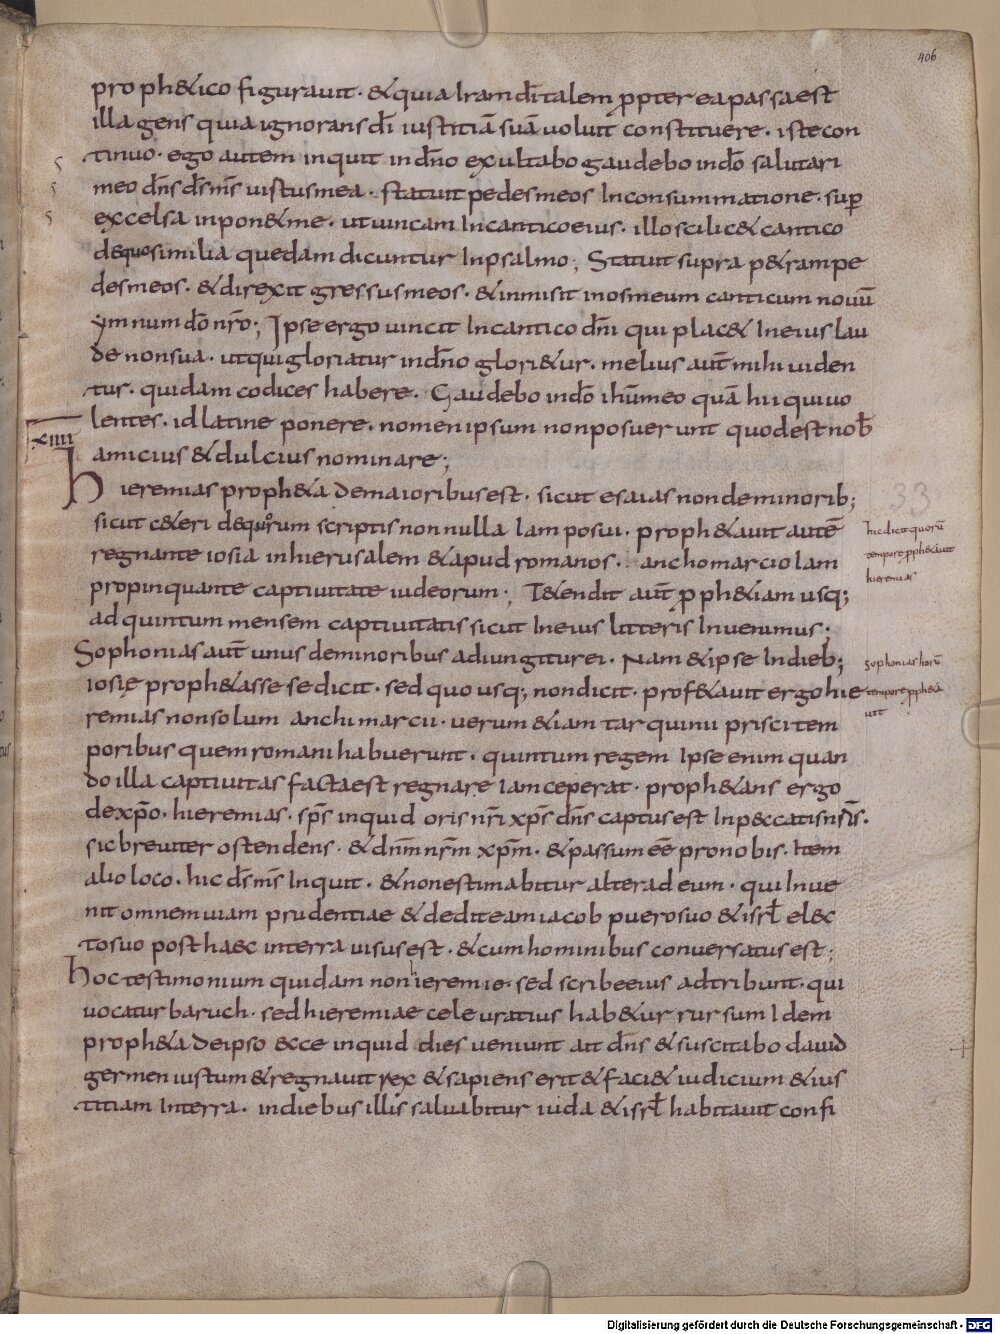 406
proph&ico figurauit · & quia iram dī talem ꝓpter ea passa est
illa gens quia ignorans dī iustitiā suā uoluit constituere · iste con
tinuo · ego autem inquit in dn̄o exultabo gaudebo in dō salutari
meo dn̄s ds̄ ms̄ uirtus mea · statuit pedes meos In consummatione · suꝑ
excelsa inpon& me · ut uincam In cantico eius · illo scilic& cantico
de quo similia quedam dicuntur In psalmo ; Statuit supra p&ram pe
des meos · & direxit gressus meos · & inmisit in os meum canticum nouū
ymnum dō nr̄o ; Ipse ergo uincit In cantico dn̄i qui plac& In eius lau
de non sua · ut qui gloriatur in dn̄o glori&ur · melius aut̄ mihi uiden
tur · quidam codices habere · Gaudebo in dō ihū meo quā hii qui uo
lentes · id latine ponere · nomen ipsum non posuerunt quod est nob̄
XIIII
amicius & dulcius nominare ;
Hieremias proph&a de maioribus est · sicut esaias non de minorib;
sicut c&eri de quorum scriptis nonnulla Iam posui · proph&auit autē
hic dicit quorū
regnante iosia in hierusalem & apud romanos · ancho marcio Iam
tempore ꝓph&auit
hieremias
propinquante captiuitate iudeorum ; T&endit aut̄ ꝓph&iam usq;
ad quintum mensem captiuitatis sicut In eius litteris Inuenimus ·
Sophonias aut̄ unus de minoribus adiungitur ei · Nam & ipse In dieb;
sophonias horū
iosię proph&asse se dicit · sed quo usq; non dicit · prof&auit ergo hie
tempore ꝓph&a
uit
remias non solum anchi marcii · uerum &iam tarquinii prisci tem
poribus quem romani habuerunt · quintum regem Ipse enim quan
do illa captiuitas facta est regnare Iam ceperat · proph&ans ergo
de xp̄o · hieremias · sps̄ inquid oris nr̄i xps̄ dn̄s captus est In peccatis nr̄is ·
sic breuiter ostendens · & dn̄m nr̄m xp̄m · & passum eē pro nobis · Item
alio loco · hic ds̄ ms̄ Inquit · & non estimabitur alter ad eum · qui Inue
nit omnem uiam prudentiae & dedit eam iacob puero suo & isrl̄ elec
to suo post haec in terra uisus est · & cum hominibus conuersatus est ;
Hoc testimonium quidam non ieremię · sed scribe eius adtribunt · qui
uocatur baruch · sed hieremiae celeuratius hab&ur rursum Idem
proph&a de ipso ecce inquid dies ueniunt ait dn̄s & suscitabo dauid
germen iustum & regnauit rex & sapiens erit & faci& iudicium & ius
titiam In terra · in diebus illis saluabitur iuda & isrl̄ habitauit confi
Digitalisierung gefördert durch die Deutsche Forschungsgemeinschaft - DFG